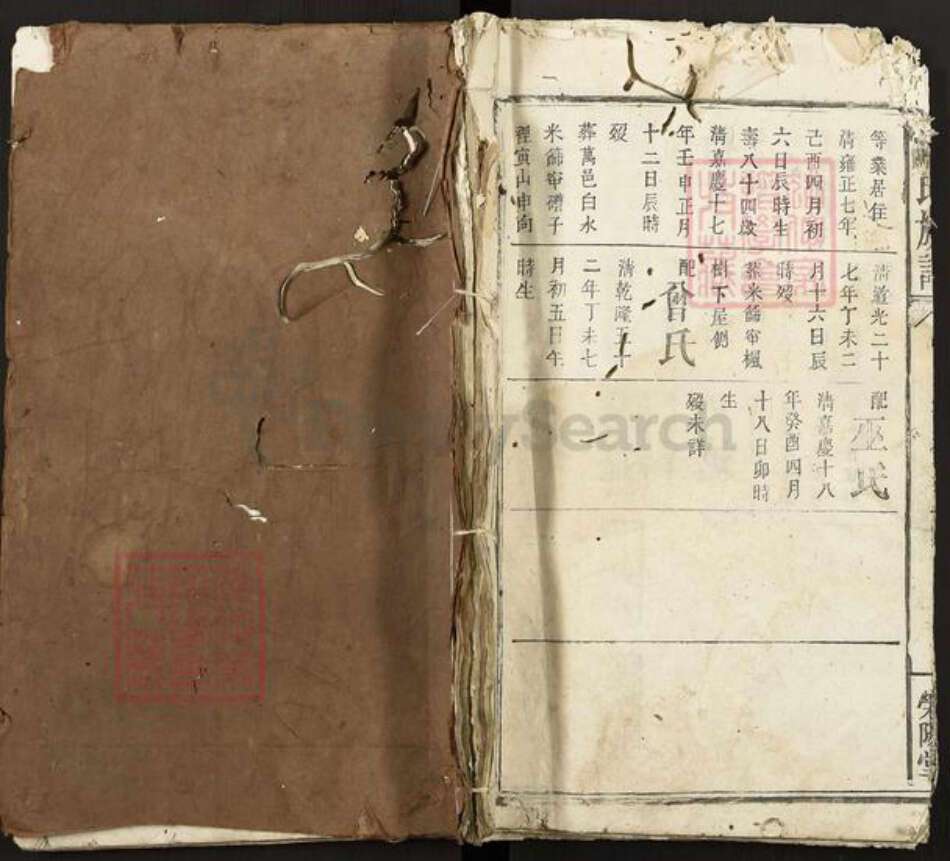 等業居住
清雍正七年
己酉四月初
六日辰時生
壽八十四歲
清嘉慶十七
年壬申正月
十二日辰時
歿
葬萬邑白水
米篩
寅山申向
清道光二十
七年丁未二
月十六日辰
時歿
葬米篩㘭楓
樹下屋側
配曾氏
清乾隆五十
二年丁未七
月初五日午
時生
配巫氏
清嘉慶十八
年癸酉四月
十八日卯時
生
歿未詳
氏族譜
滎陽堂
FamilySearch